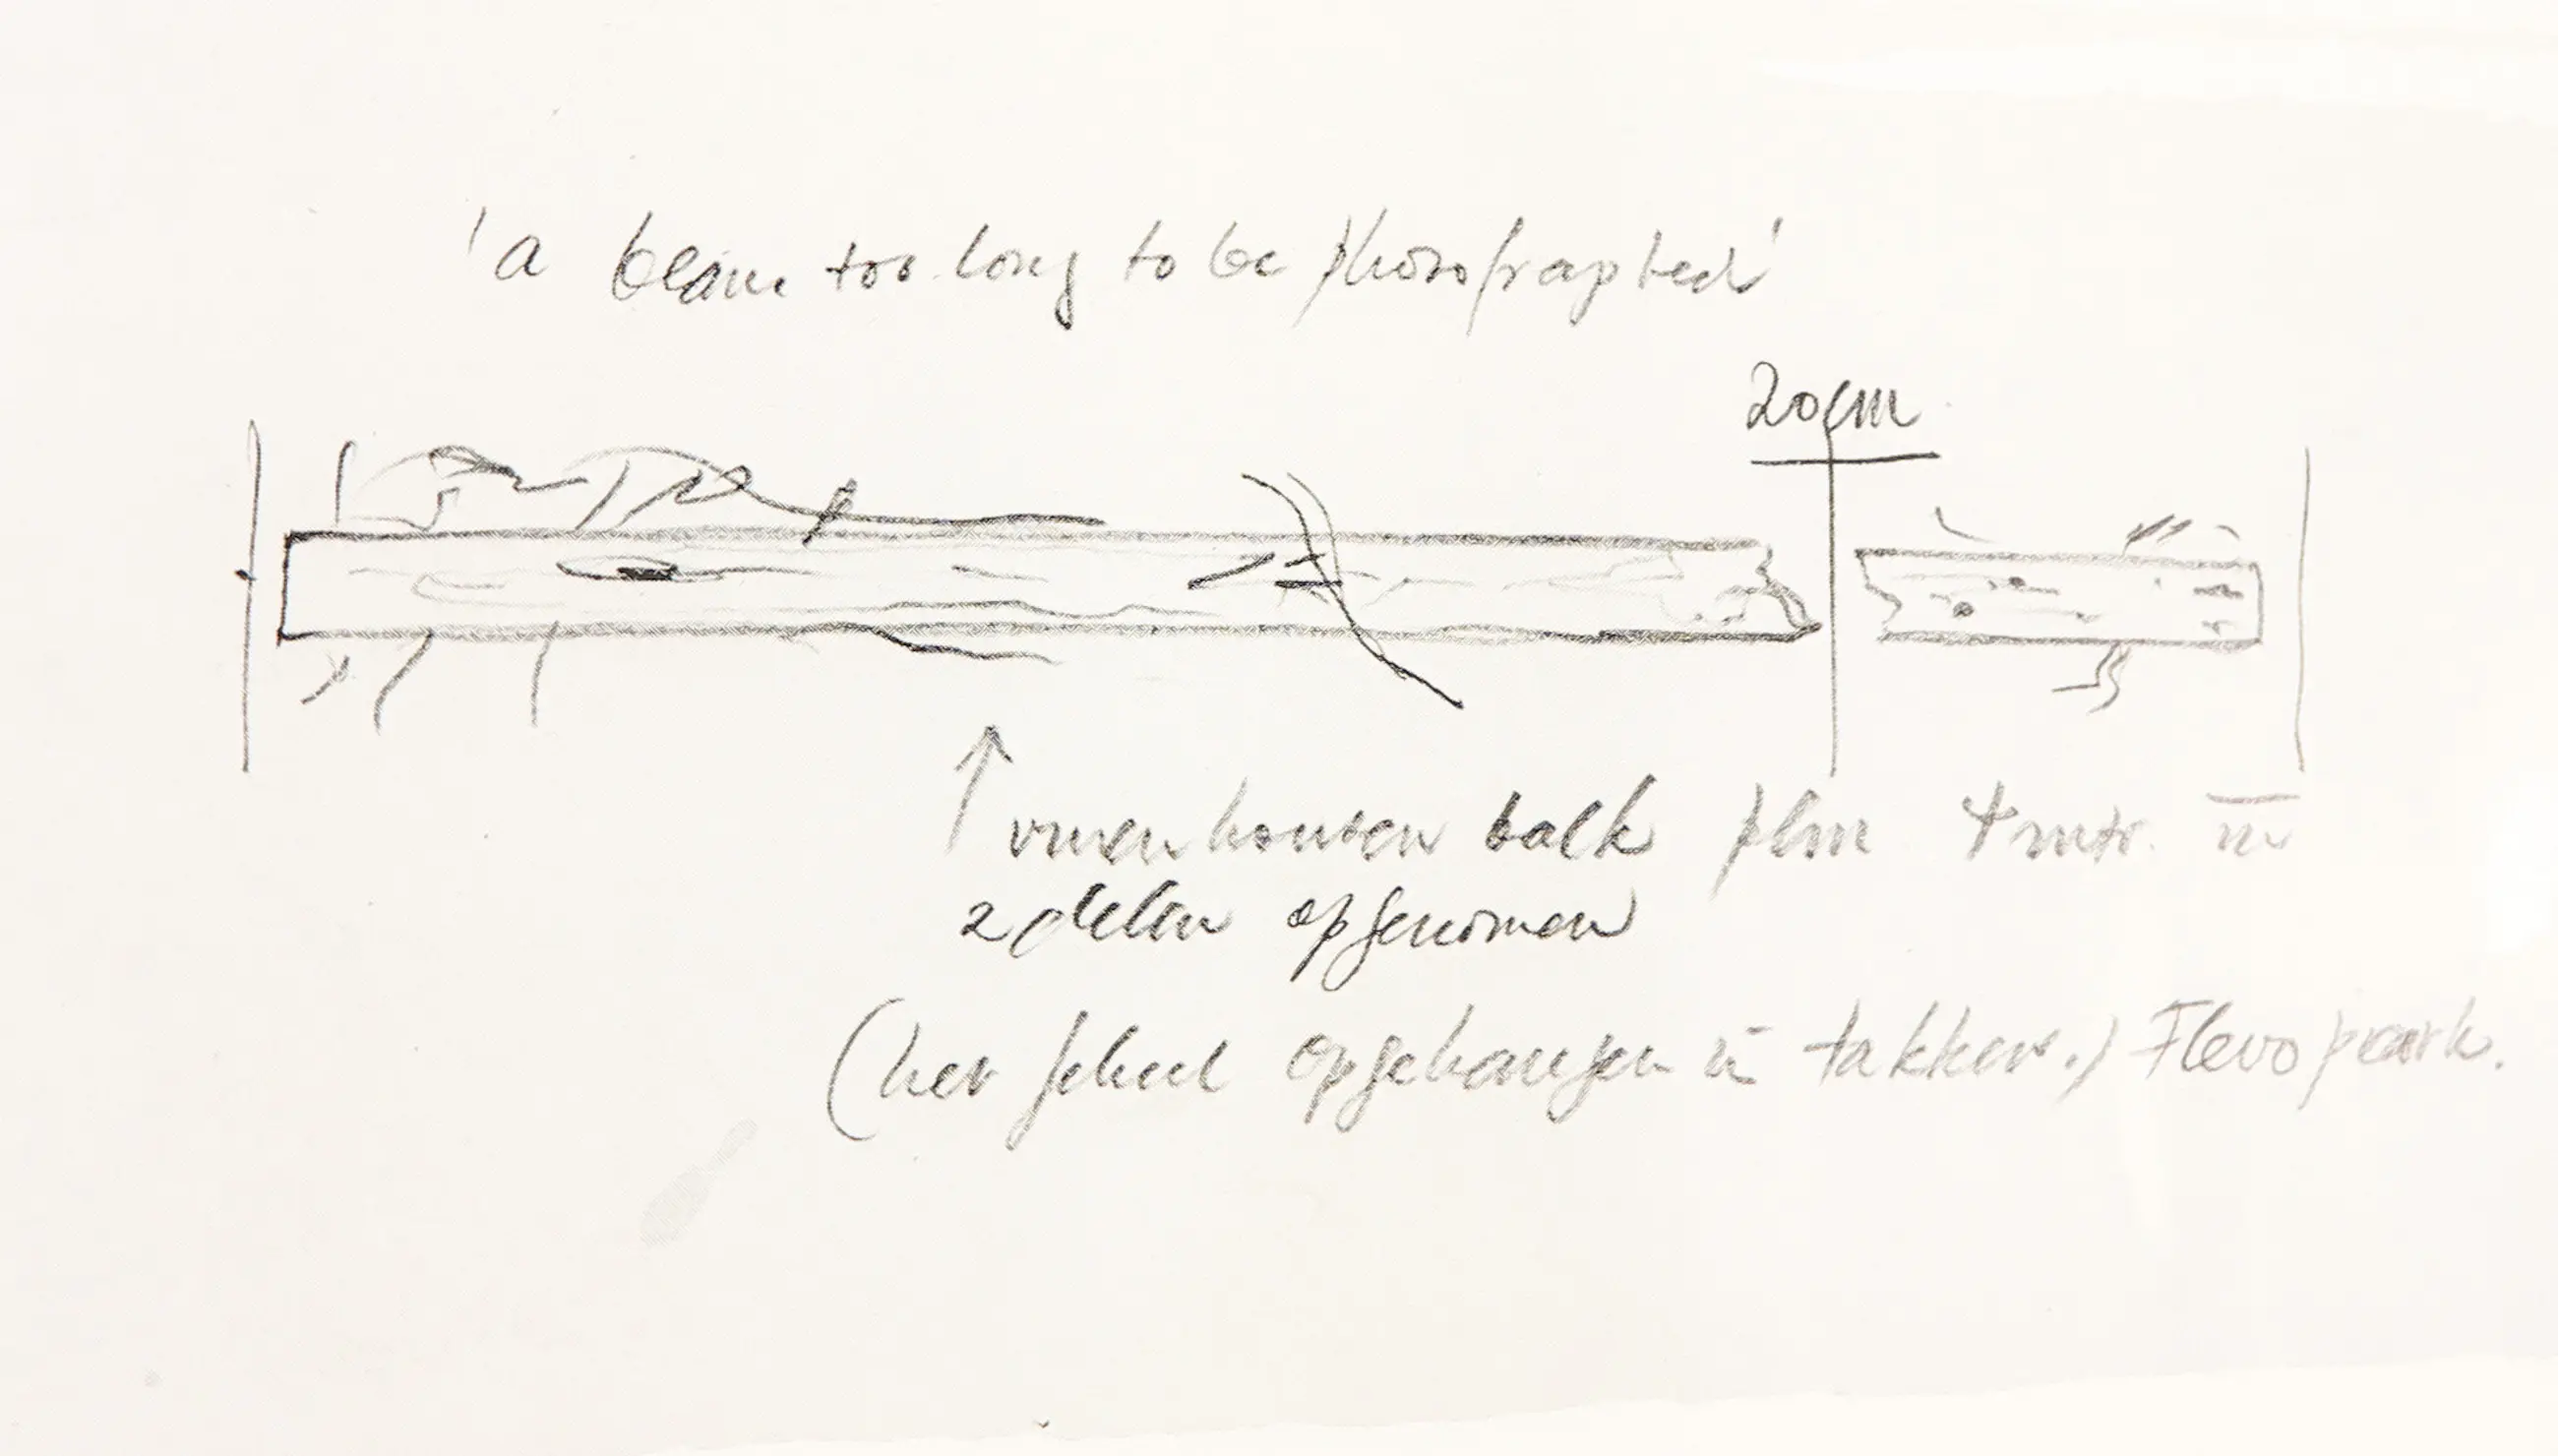 'a beam too long to be photographed'
20 cm
vurenhouten balk plm 4 mtr. in
2 delen opgenomen
(het geheel opgehangen in takken.) Flevopark.